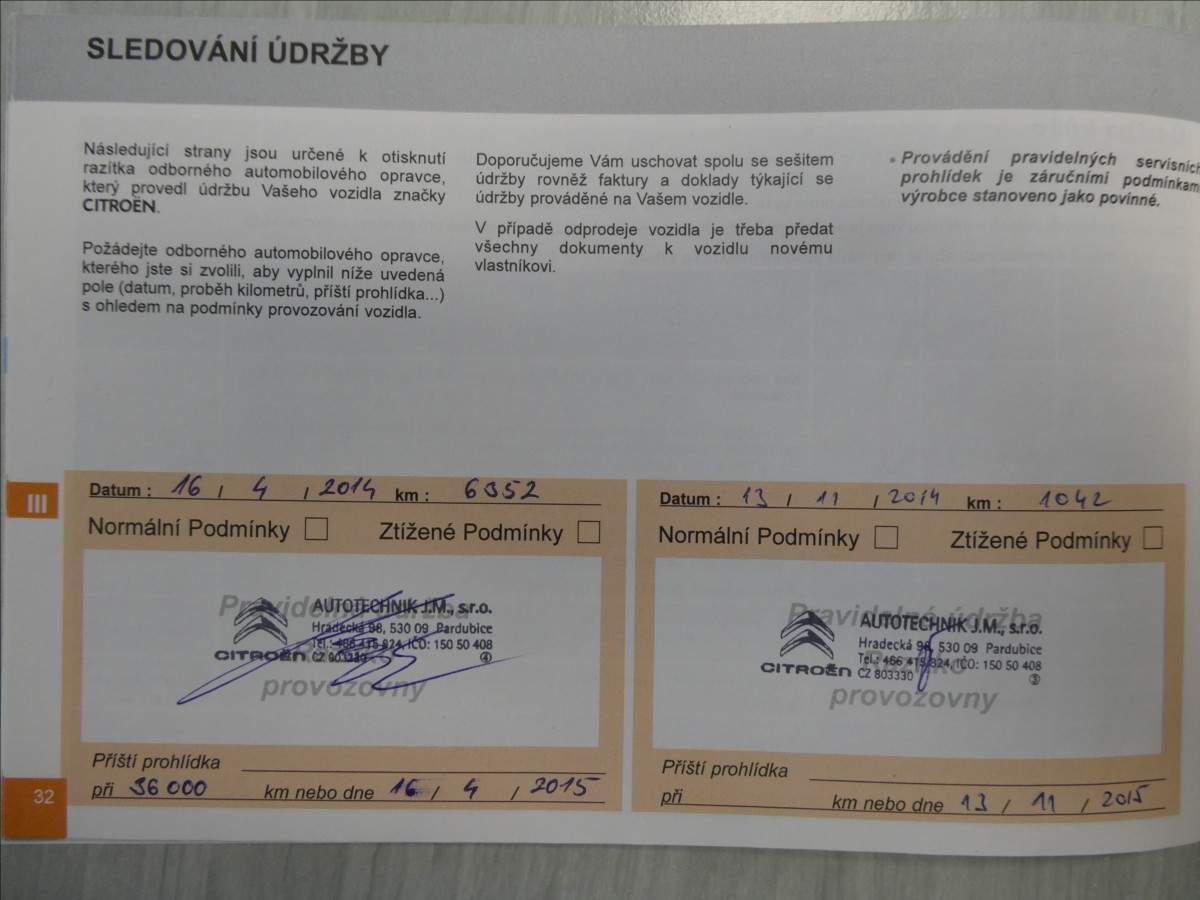 SLEDOVÁNÍ ÚDRŽBY
Následující strany jsou určené k otisknutí
razítka odborného automobilového opravce,
který provedl údržbu Vašeho vozidla značky
CITROËN.
Požádejte odborného automobilového opravce,
kterého jste si zvolili, aby vyplnil níže uvedená
pole (datum, proběh kilometrů, příští prohlídka...)
s ohledem na podmínky provozování vozidla.
Doporučujeme Vám uschovat spolu se sešitem
údržby rovněž faktury a doklady týkající se
údržby prováděné na Vašem vozidle.
V případě odprodeje vozidla je třeba předat
všechny dokumenty k vozidlu novému
vlastníkovi.
• Provádění pravidelných servisních
prohlídek je záručními podmínkami
výrobce stanoveno jako povinné.
III
Datum : 16 / 4 / 2014 km : 6352
Normální Podmínky Ztížené Podmínky
Pravidelná údržba
AUTOTECHNIK J.M., s.r.o.
Hradecká 98, 530 09 Pardubice
Tel.: 466 415 824, IČO: 150 50 408
CITROËN CZ 803330 4
provozovny
Příští prohlídka
při 36000 km nebo dne 16 / 4 / 2015
Datum : 13 / 11 / 2014 km : 1042
Normální Podmínky Ztížené Podmínky
Pravidelná údržba
AUTOTECHNIK J.M., s.r.o.
Hradecká 98, 530 09 Pardubice
Tel.: 466 415 824, IČO: 150 50 408
CITROËN CZ 803330 3
provozovny
Příští prohlídka
při km nebo dne 13 / 11 / 2015
32